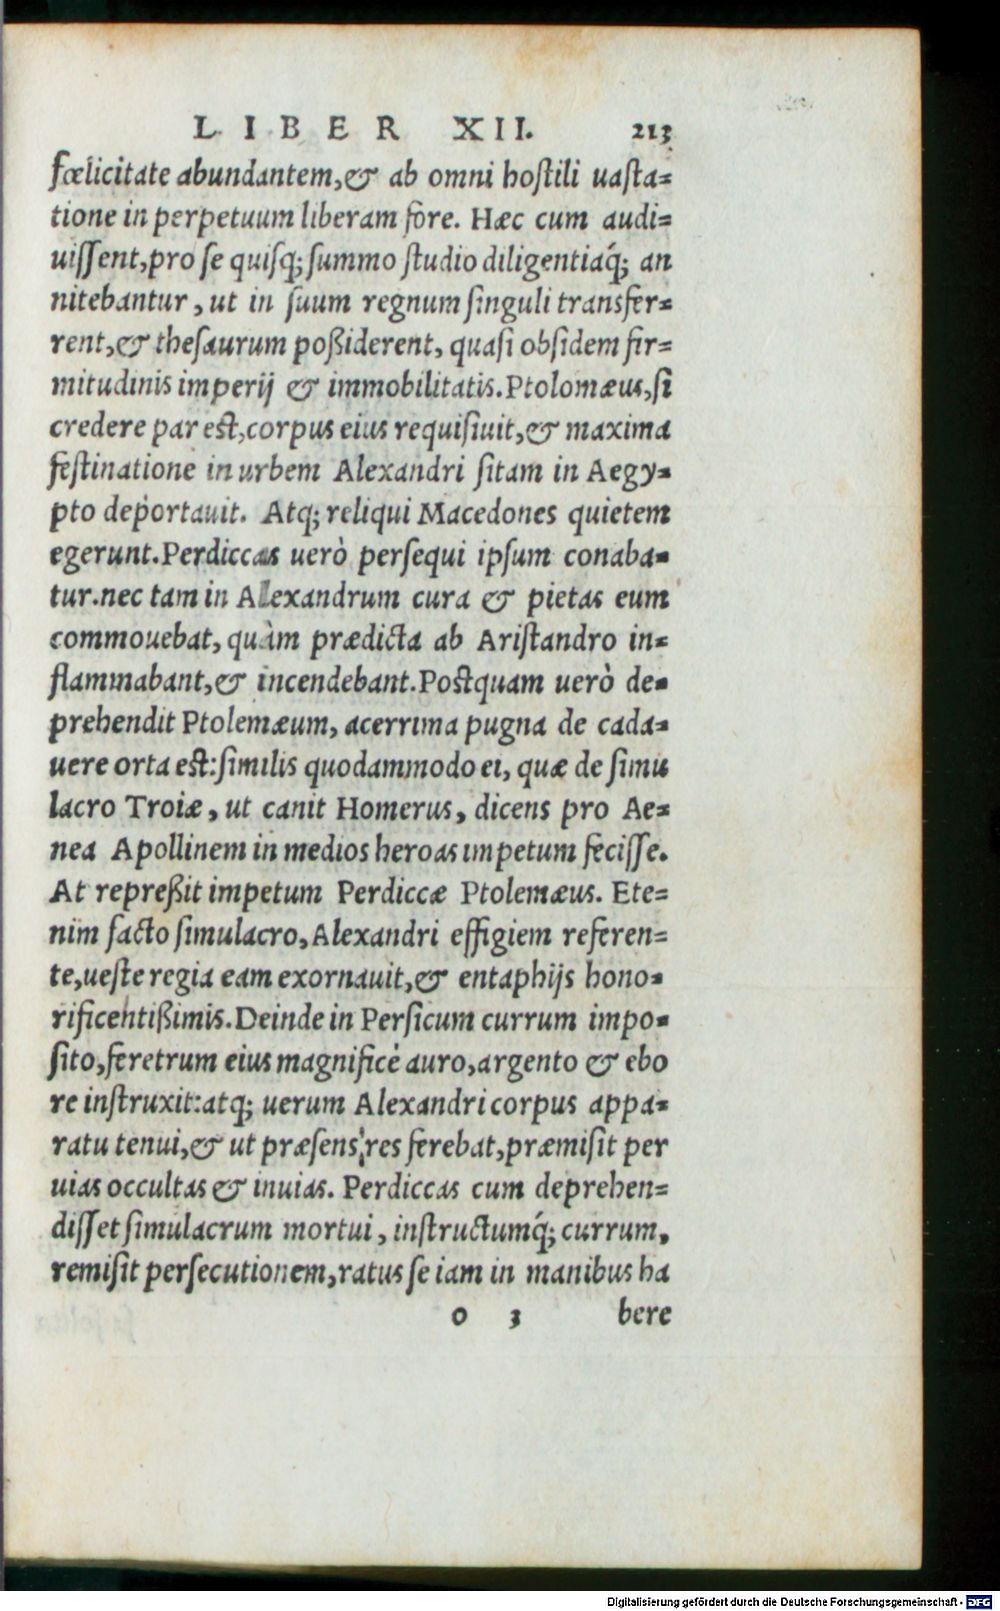 LIBER XII. 213
fœlicitate abundantem, & ab omni hostili uasta=
tione in perpetuum liberam fore. Hæc cum audi=
uissent, pro se quisq; summo studio diligentiaq́; an
nitebantur, ut in suum regnum singuli transfer=
rent, & thesaurum poßiderent, quasi obsidem fir=
mitudinis imperij & immobilitatis. Ptolomæus, si
credere par est, corpus eius requisiuit, & maxima
festinatione in urbem Alexandri sitam in Aegy=
pto deportauit. Atq; reliqui Macedones quietem
egerunt. Perdiccas uerò persequi ipsum conaba=
tur. nec tam in Alexandrum cura & pietas eum
commouebat, quàm prædicta ab Aristandro in=
flammabant, & incendebant. Postquam uerò de=
prehendit Ptolemæum, acerrima pugna de cada=
uere orta est: similis quodammodo ei, quæ de simu
lacro Troiæ, ut canit Homerus, dicens pro Ae=
nea Apollinem in medios heroas impetum fecisse.
At repreßit impetum Perdiccæ Ptolemæus. Ete=
nim facto simulacro, Alexandri effigiem referen=
te, ueste regia eam exornauit, & entaphijs hono=
rificentißimis. Deinde in Persicum currum impo=
sito, feretrum eius magnificè auro, argento & ebo
re instruxit: atq; uerum Alexandri corpus appa=
ratu tenui, & ut præsens res ferebat, præmisit per
uias occultas & inuias. Perdiccas cum deprehen=
disset simulacrum mortui, instructumq́; currum,
remisit persecutionem, ratus se iam in manibus ha
o 3 bere
Digitalisierung gefördert durch die Deutsche Forschungsgemeinschaft - DFG